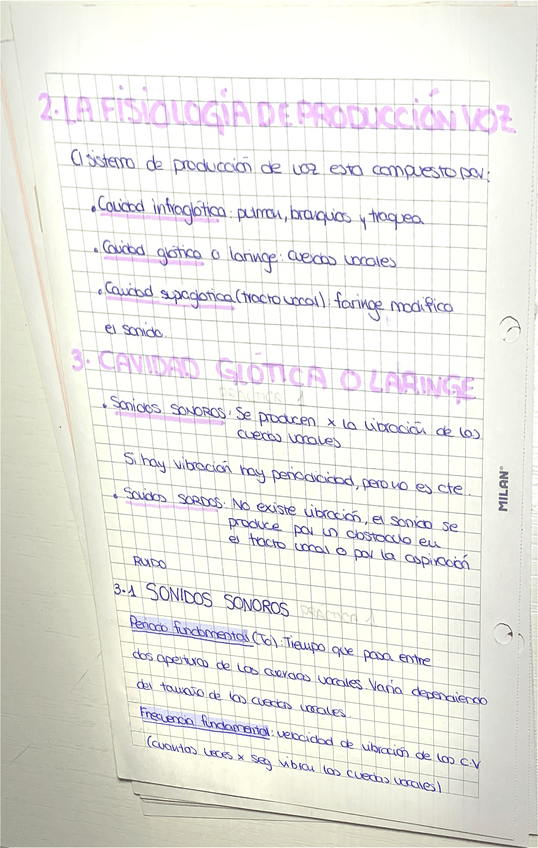 2. LA FISIOLOGÍA DE PRODUCCIÓN VOZ
El sistema de producción de voz esta compuesto por:
• Cavidad infraglótica: pulmon, bronquios y traquea
• Cavidad glótica o laringe: cuerdas vocales
• Cavidad supaglotica (tracto vocal): faringe modifica
el sonido.
3. CAVIDAD GLÓTICA O LARINGE
• Sonidos SONOROS: Se producen x la vibración de las
cuerdas vocales
Si hay vibración hay periodicidad, pero no es cte.
• Sonidos SORDOS: No existe vibración, el sonido se
produce por un obstaculo en
el tracto vocal o por la aspiración
RUIDO
3.1 SONIDOS SONOROS
Periodo fundamental (To): Tiempo que pasa entre
dos aperturas de las cuerdas vocales. Varía dependiendo
del tamaño de las cuerdas vocales.
Frecuencia fundamental: velocidad de vibración de las C.V
(cuantas veces x seg vibran las cuerdas vocales)
MILAN®